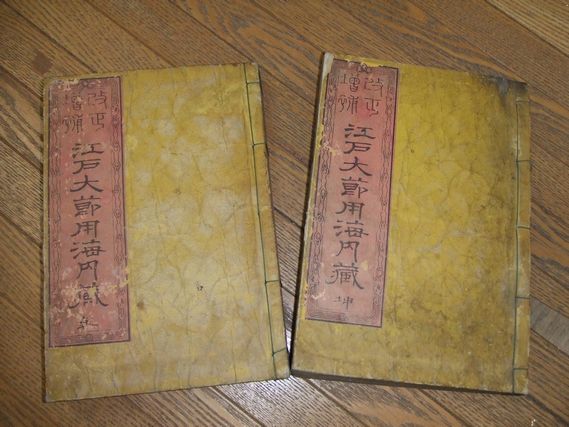 改正
増補
江戸大節用海内藏
乾
改正
増補
江戸大節用海内藏
坤